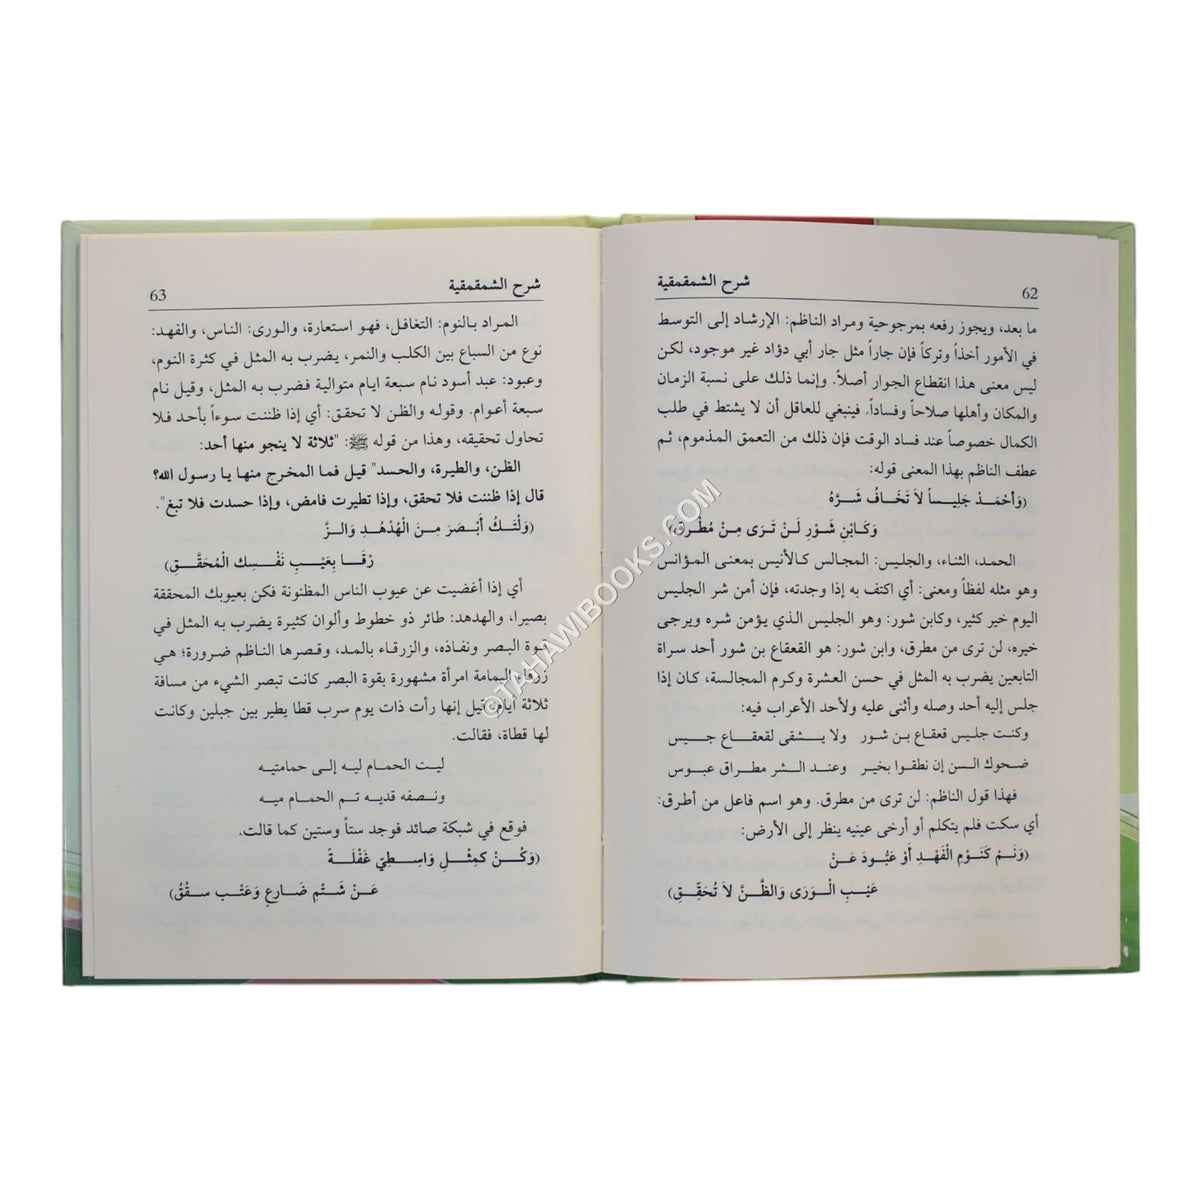 شرح الشمقمقية
62
ما بعد، ويجوز رفعه بمرجوحية ومراد الناظم: الإرشاد إلى التوسط
في الأمور أخذاً وتركاً فإن جاراً مثل جار أبي دؤاد غير موجود، لكن
ليس معنى هذا انقطاع الجوار أصلاً. وإنما ذلك على نسبة الزمان
والمكان وأهلها صلاحاً وفساداً. فينبغي للعاقل أن لا يشتط في طلب
الكمال خصوصاً عند فساد الوقت فإن ذلك من التعمق المذموم، ثم
عطف الناظم بهذا المعنى قوله:
(وَاحْمَدْ جَلِيساً لاَ تَخَافُ شَرَّهُ
وَكَابْنِ شَوْرٍ لَنْ تَرَى مِنْ مُطْرِقِ)
الحمد، الثناء، والجليس: المجالس كالأنيس بمعنى المؤانس
وهو مثله لفظاً ومعنى: أي اكتف به إذا وجدته، فإن أمن شر الجليس
اليوم خير كثير، وكابن شور: وهو الجليس الذي يؤمن شره ويرجى
خيره، لن ترى من مطرق، وابن شور: هو القعقاع بن شور أحد سراة
التابعين يضرب به المثل في حسن العشرة وكرم المجالسة، كان إذا
جلس إليه أحد وصله وأثنى عليه ولأحد الأعراب فيه:
وكنت جليس قعقاع بن شور ولا يشقى لقعقاع جليس
ضحوك السن إن نطقوا بخير وعند الشر مطراق عبوس
فهذا قول الناظم: لن ترى من مطرق. وهو اسم فاعل من أطرق:
أي سكت فلم يتكلم أو أرخى عينيه ينظر إلى الأرض:
(وَنَمْ كَنَوْمِ الْفَهْدِ أَوْ عَبُّودَ عَنْ
عَيْبِ الْوَرَى وَالظَّنَّ لاَ تُحَقِّقِ)
شرح الشمقمقية
63
المراد بالنوم: التغافل، فهو استعارة، والورى: الناس، والفهد:
نوع من السباع بين الكلب والنمر، يضرب به المثل في كثرة النوم،
وعبود: عبد أسود نام سبعة ايام متوالية فضرب به المثل، وقيل نام
سبعة أعوام. وقوله والظن لا تحقق: أي إذا ظننت سوءاً بأحد فلا
تحاول تحقيقه، وهذا من قوله ﷺ: "ثلاثة لا ينجو منها أحد:
الظن، والطيرة، والحسد" قيل فما المخرج منها يا رسول الله؟
قال إذا ظننت فلا تحقق، وإذا تطيرت فامض، وإذا حسدت فلا تبغ".
(وَلْتَكُ أَبْصَرَ مِنَ الْهُدْهُدِ وَالزَّ
رْقَـا بِعَيْبِ نَفْسِكَ الْمُحَقَّقِ)
أي إذا أغضيت عن عيوب الناس المظنونة فكن بعيوبك المحققة
بصيرا، والهدهد: طائر ذو خطوط وألوان كثيرة يضرب به المثل في
قوة البصر ونفاذه، والزرقاء بالمد، وقصرها الناظم ضرورة؛ هي
زرقاء اليمامة امرأة مشهورة بقوة البصر كانت تبصر الشيء من مسافة
ثلاثة أيام، قيل إنها رأت ذات يوم سرب قطا يطير بين جبلين وكانت
لها قطاة، فقالت.
ليت الحمام ليه إلى حمامتيه
ونصفه قديه تم الحمام ميه
فوقع في شبكة صائد فوجد ستاً وستين كما قالت.
(وَكُنْ كَمِثْلِ وَاسِطِيّ غَفْلَةً
عَنْ شَتْمِ ضَارِعٍ وَعَتْبِ سقُقُ)
©TAHAWIBOOKS.COM